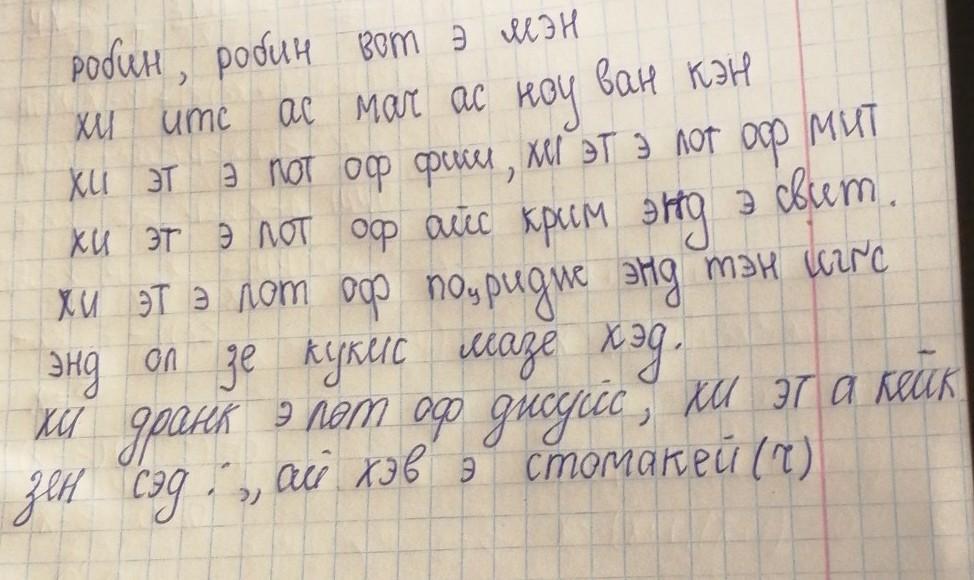 робин, робин вот э мэн
хи итс ас мач ас ноу ван кэн
хи эт э лот оф фиш, хи эт э лот оф мит
хи эт э лот оф айс крим энд э свит.
хи эт э лот оф порридж энд тэн эггс
энд ол зе кукис мазе хэд.
хи дранк э лот оф джуйс, хи эт а кейк
зен сэд : „ай хэв э стомакей(к)